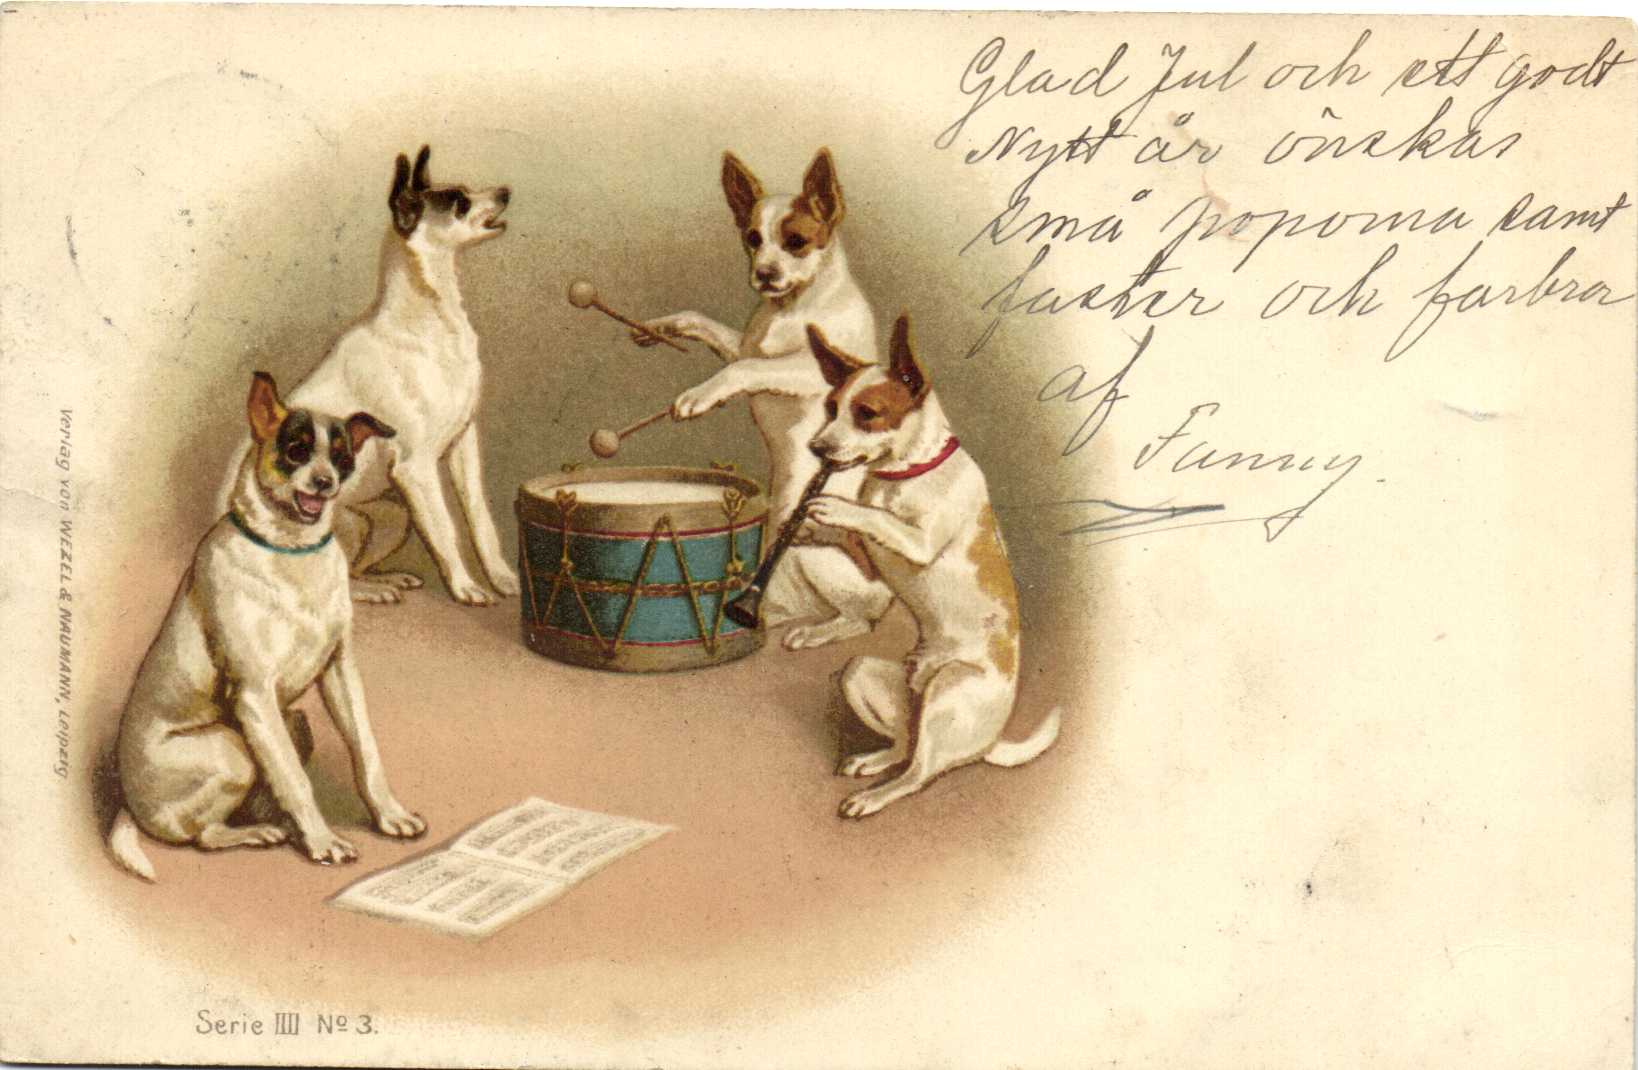 Glad Jul och ett godt
Nytt år önskas
små poporna samt
faster och farbror
af
Fanny.
Verlag von WEZEL & NAUMANN, Leipzig
Serie IIII No 3.